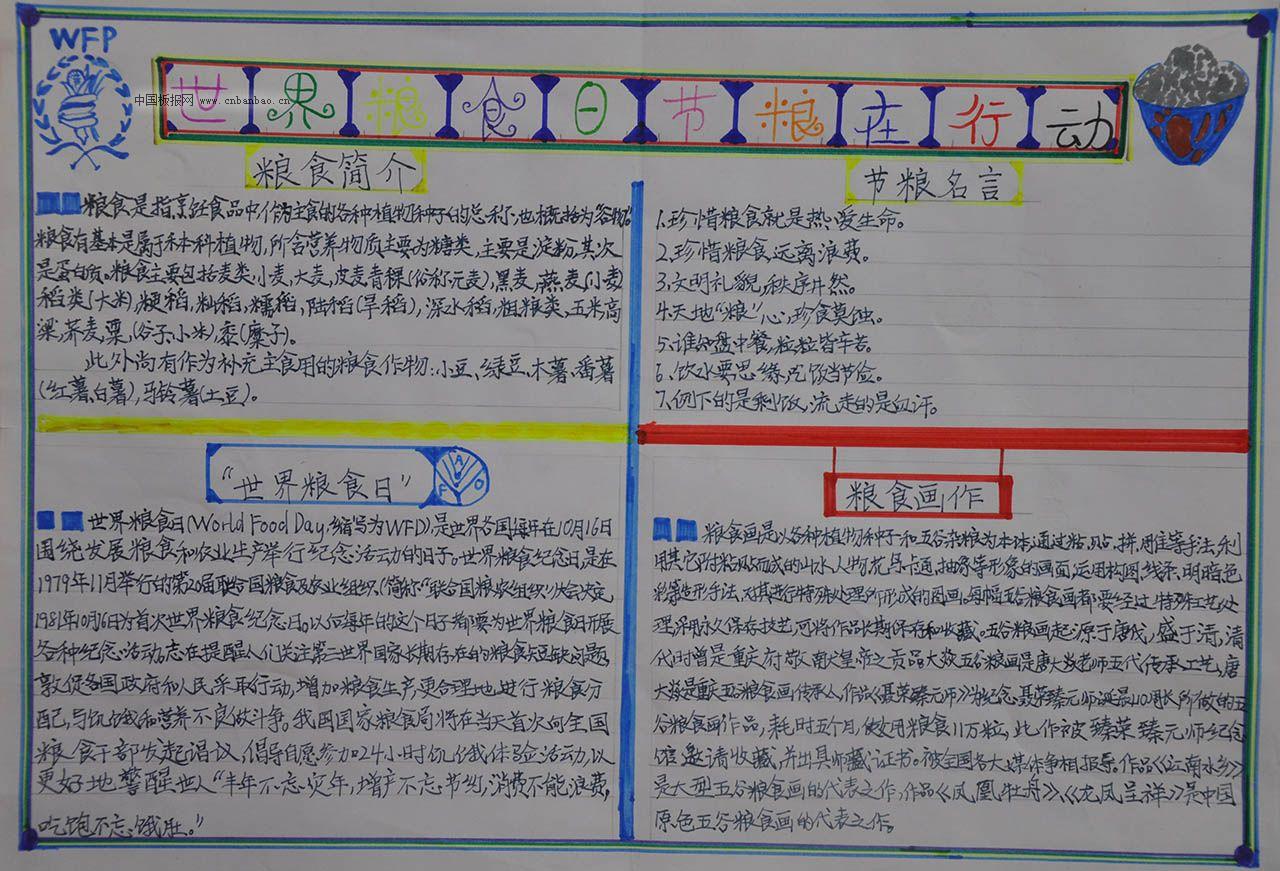 WFP
中国板报网 www.cnbanbao.cn
世界粮食日节粮在行动
粮食简介
粮食是指烹饪食品中作为主食的各种植物种子的总称,也概括为"谷物"。
粮食有基本是属于禾本科植物,所含营养物质主要为糖类,主要是淀粉,其次
是蛋白质。粮食主要包括麦类,小麦,大麦,皮麦青稞(俗称元麦),黑麦,燕麦(小麦)
稻类(大米),粳稻,籼稻,糯稻,陆稻(旱稻),深水稻,粗粮类,玉米高
粱荞麦粟(谷子,小米),黍(糜子)。
此外尚有作为补充主食用的粮食作物:小豆、绿豆、木薯、番薯
(红薯、白薯),马铃薯(土豆)。
节粮名言
1.珍惜粮食就是热爱生命。
2.珍惜粮食,远离浪费。
3.文明礼貌,秩序井然。
4.天地"粮"心,珍食莫蚀。
5.谁知盘中餐,粒粒皆辛苦。
6.饮水要思源,吃饭当节俭。
7.倒下的是剩饭,流走的是血汗。
"世界粮食日"
FAO
世界粮食日(World Food Day,缩写为WFD),是世界各国每年在10月16日
围绕发展粮食和农业生产举行纪念活动的日子。世界粮食纪念日,是在
1979年11月举行的第20届联合国粮食及农业组织(简称"联合国粮农组织")大会决定
1981年10月16日为首次世界粮食纪念日。以后每年的这个日子都要为世界粮食日开展
各种纪念活动,志在提醒人们关注第三世界国家长期存在的粮食短缺问题,
敦促各国政府和人民采取行动,增加粮食生产,更合理地进行粮食分
配,与饥饿和营养不良做斗争。我国国家粮食局将在当天首次向全国
粮食干部发起倡议,倡导自愿参加24小时饥饿体验活动,以
更好地警醒世人"丰年不忘灾年,增产不忘节约,消费不能浪费,
吃饱不忘饿肚。"
粮食画作
粮食画是以各种植物种子和五谷杂粮为本体,通过粘,贴,拼,雕等手法,利
用其它附料粘贴而成的山水,人物,花鸟,卡通,抽象等形象的画面,运用构图,线条,明暗,色
彩等造形手法,对其进行特殊处理所形成的图画。每幅五谷粮食画都要经过特殊工艺处
理,采用永久保存技艺,可将作品长期保存和收藏。五谷粮食画起源于唐代,盛于清,清
代时曾是重庆府敬献皇帝之贡品大数五谷粮食画是唐大数老师五代传承工艺,唐
大数是重庆五谷粮食画传承人,作品《聂荣臻元帅》为纪念聂荣臻元帅诞辰110周长所做的五
谷粮食画作品,耗时五个月,使用粮食11万粒,此作被臻荣臻元帅纪念
馆邀请收藏,并出具收藏证书。被全国各大媒体争相报导。作品《江南水乡》
是大型五谷粮食画的代表之作,作品《凤凰牡丹》、《龙凤呈祥》是中国
原色五谷粮食画的代表之作。